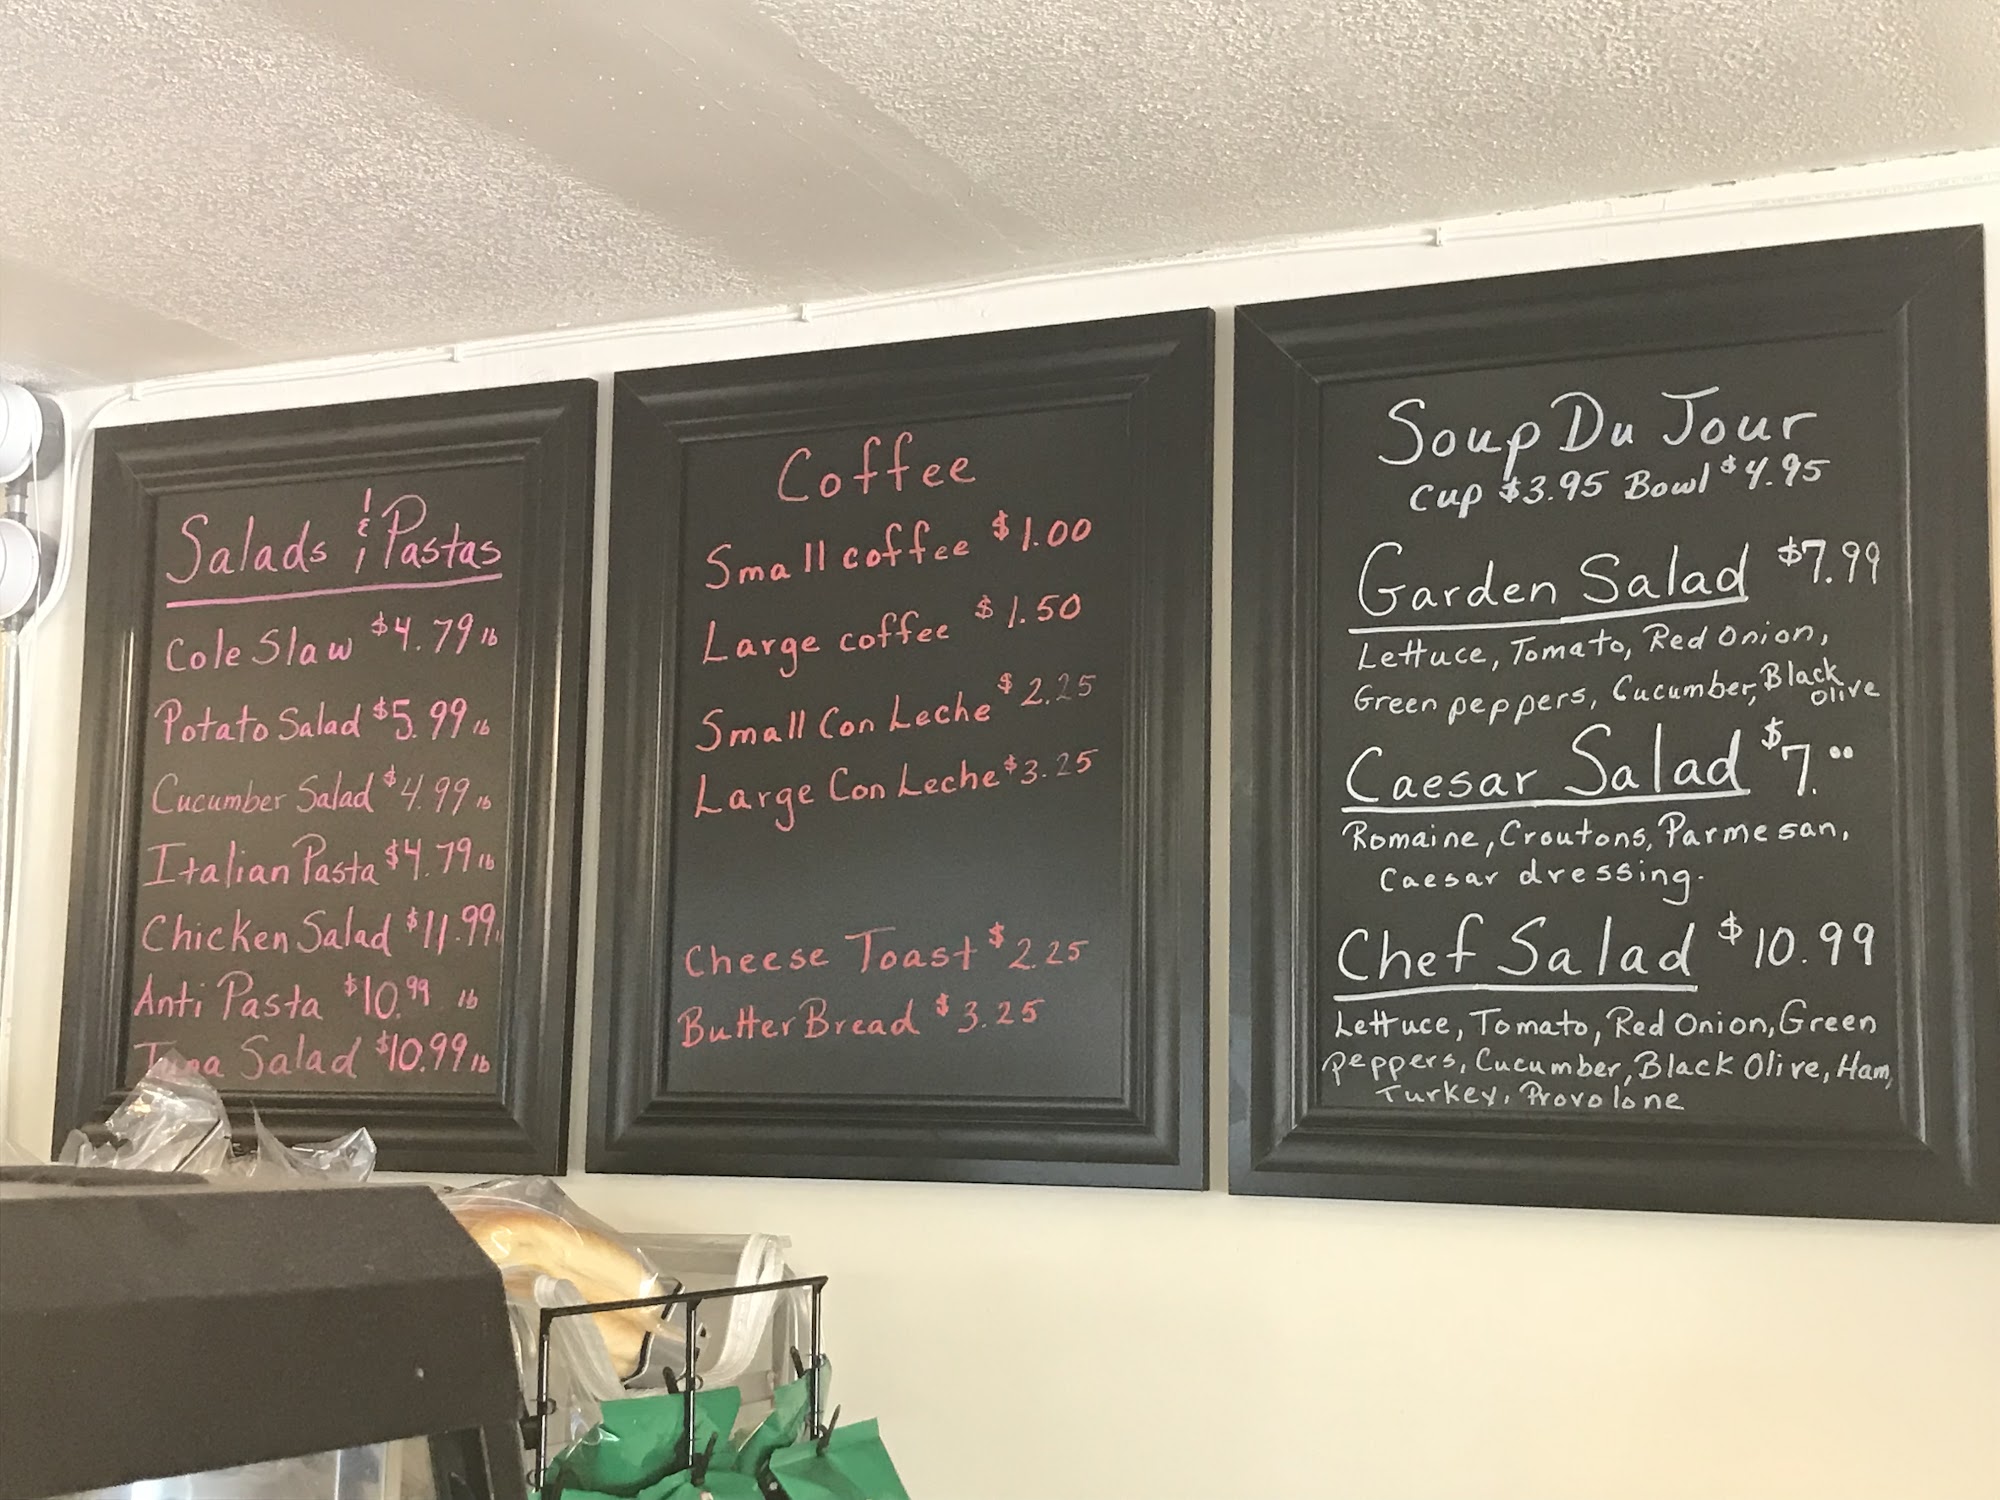 Salads & Pastas
Cole Slaw $4.79 lb
Potato Salad $5.99 lb
Cucumber Salad $4.99 lb
Italian Pasta $4.79 lb
Chicken Salad $11.99
Anti Pasta $10.99 lb
Tuna Salad $10.99 lb
Coffee
Small coffee $1.00
Large coffee $1.50
Small Con Leche $2.25
Large Con Leche $3.25
Cheese Toast $2.25
Butter Bread $3.25
Soup Du Jour
Cup $3.95 Bowl $4.95
Garden Salad $7.99
Lettuce, Tomato, Red Onion,
Green peppers, Cucumber, Black olive
Caesar Salad $7.00
Romaine, Croutons, Parmesan,
Caesar dressing.
Chef Salad $10.99
Lettuce, Tomato, Red Onion, Green
peppers, Cucumber, Black Olive, Ham,
Turkey, Provolone